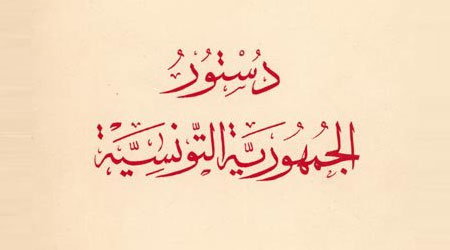 دُسْتُورُ
الجُمهُورِيَّةِ التُّونسِيَّةِ